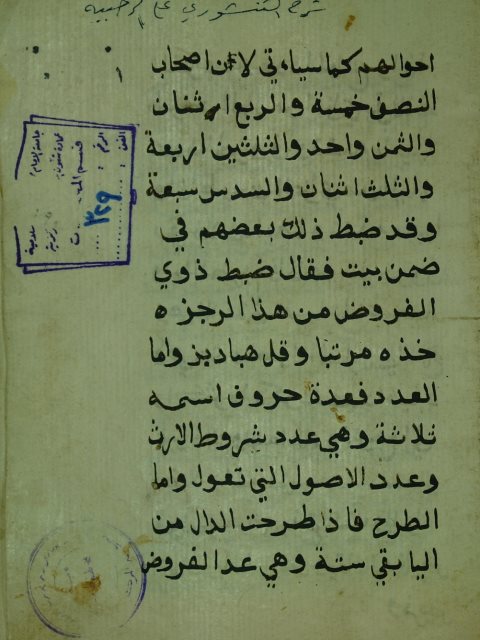 شرح الشنشوري على الرحبية
١
احوالهم كما سياءتي لاءن اصحاب
النصف خمسة والربع اثنان
والثمن واحد والثلثين اربعة
والثلث اثنان والسدس سبعة
وقد ضبط ذلك بعضهم في
ضمن بيت فقال ضبط ذوي
الفروض من هذا الرجز ه
خذه مرتبا وقل هبادبز واما
العدد فعدة حروف اسمه
ثلاثة وهي عدد شروط الارث
وعدد الاصول التي تعول واما
الطرح فاذا طرحت الدال من
اليا بقي ستة وهي عدا لفروض
الرقم
٣٢٩